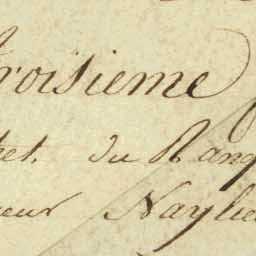 troisieme
et du Rang
eur Naylie